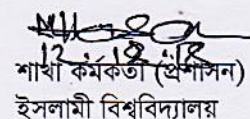 12.12.18
শাখা কর্মকর্তা (প্রশাসন)
ইসলামী বিশ্ববিদ্যালয়